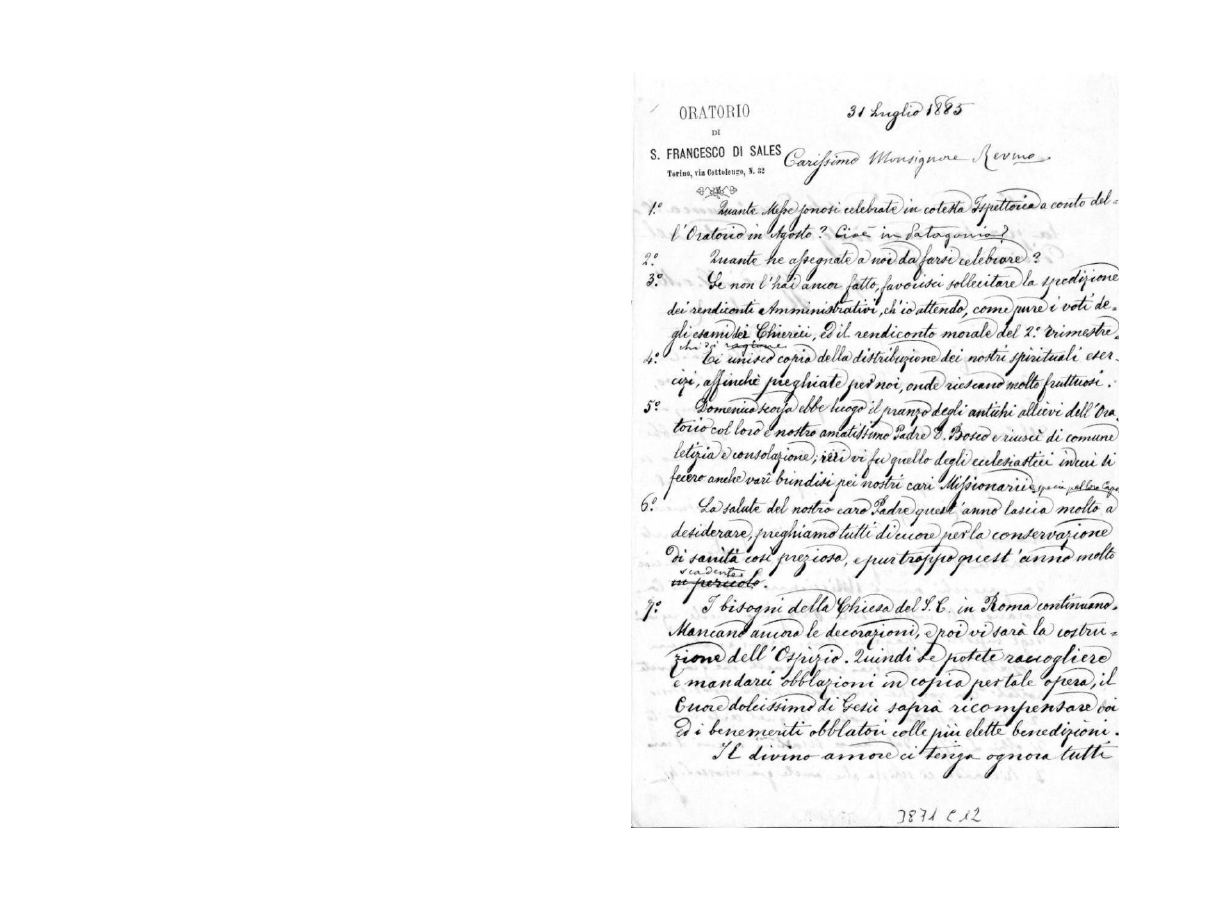 ORATORIO
DI
S. FRANCESCO DI SALES
Torino, via Cottolengo, N. 32
31 Luglio 1885
Carissimo Monsignore Revmo.
1.° Quante Messe sonosi celebrate in cotesta Ispettoria a conto del=
l'Oratorio in Agosto? Cioè in Patagonia?
2.° Quante ne assegnate a noi da farsi celebrare?
3.° Se non l'hai ancor fatto, favorisci sollecitare la spedizione
dei rendiconti Amministrativi, ch'io attendo, come pure i voti de=
gli esami dei Chierici, ed il rendiconto morale del 2.° trimestre.
chi di ragione
4.° Ti unisco copia della distribuzione dei nostri spirituali eser=
cizi, affinchè preghiate per noi, onde riescano molto fruttuosi.
5.° Domenica scorsa ebbe luogo il pranzo degli antichi allievi dell'Ora=
torio col loro e nostro amatissimo Padre D. Bosco e riuscì di comune
letizia e consolazione; ieri vi fu quello degli ecclesiastici in cui si
fecero anche vari brindisi pei nostri cari Missionarii e specie pel loro Capo
6.° La salute del nostro caro Padre quest'anno lascia molto a
desiderare, preghiamo tutti di cuore per la conservazione
di sanità così preziosa, e pur troppo quest'anno molto
scadente
in pericolo.
7.° I bisogni della Chiesa del S. C. in Roma continuano.
Mancano ancora le decorazioni, e poi vi sarà la costru=
zione dell'Ospizio. Quindi se potete raccogliere
e mandarci obblazioni in copia per tale opera, il
Cuore dolcissimo di Gesù saprà ricompensare voi
ed i benemeriti obblatori colle più elette benedizioni.
Il divino amore ci tenga ognora tutti
3871 C12